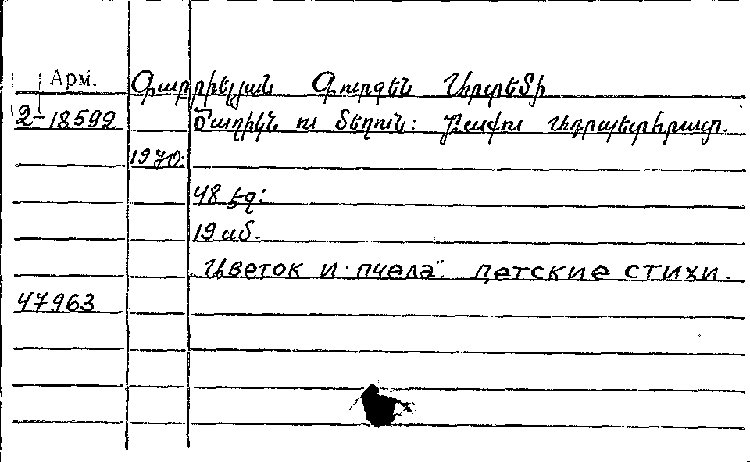 Арм.
Գաբրիելյան Գուրգեն Արտեմի
2-18592
Ծաղիկն ու մեղուն: Բաքու Ադրպետհրատ.
1970:
48 էջ:
19 սմ.
Цветок и пчела. детские стихи.
47963